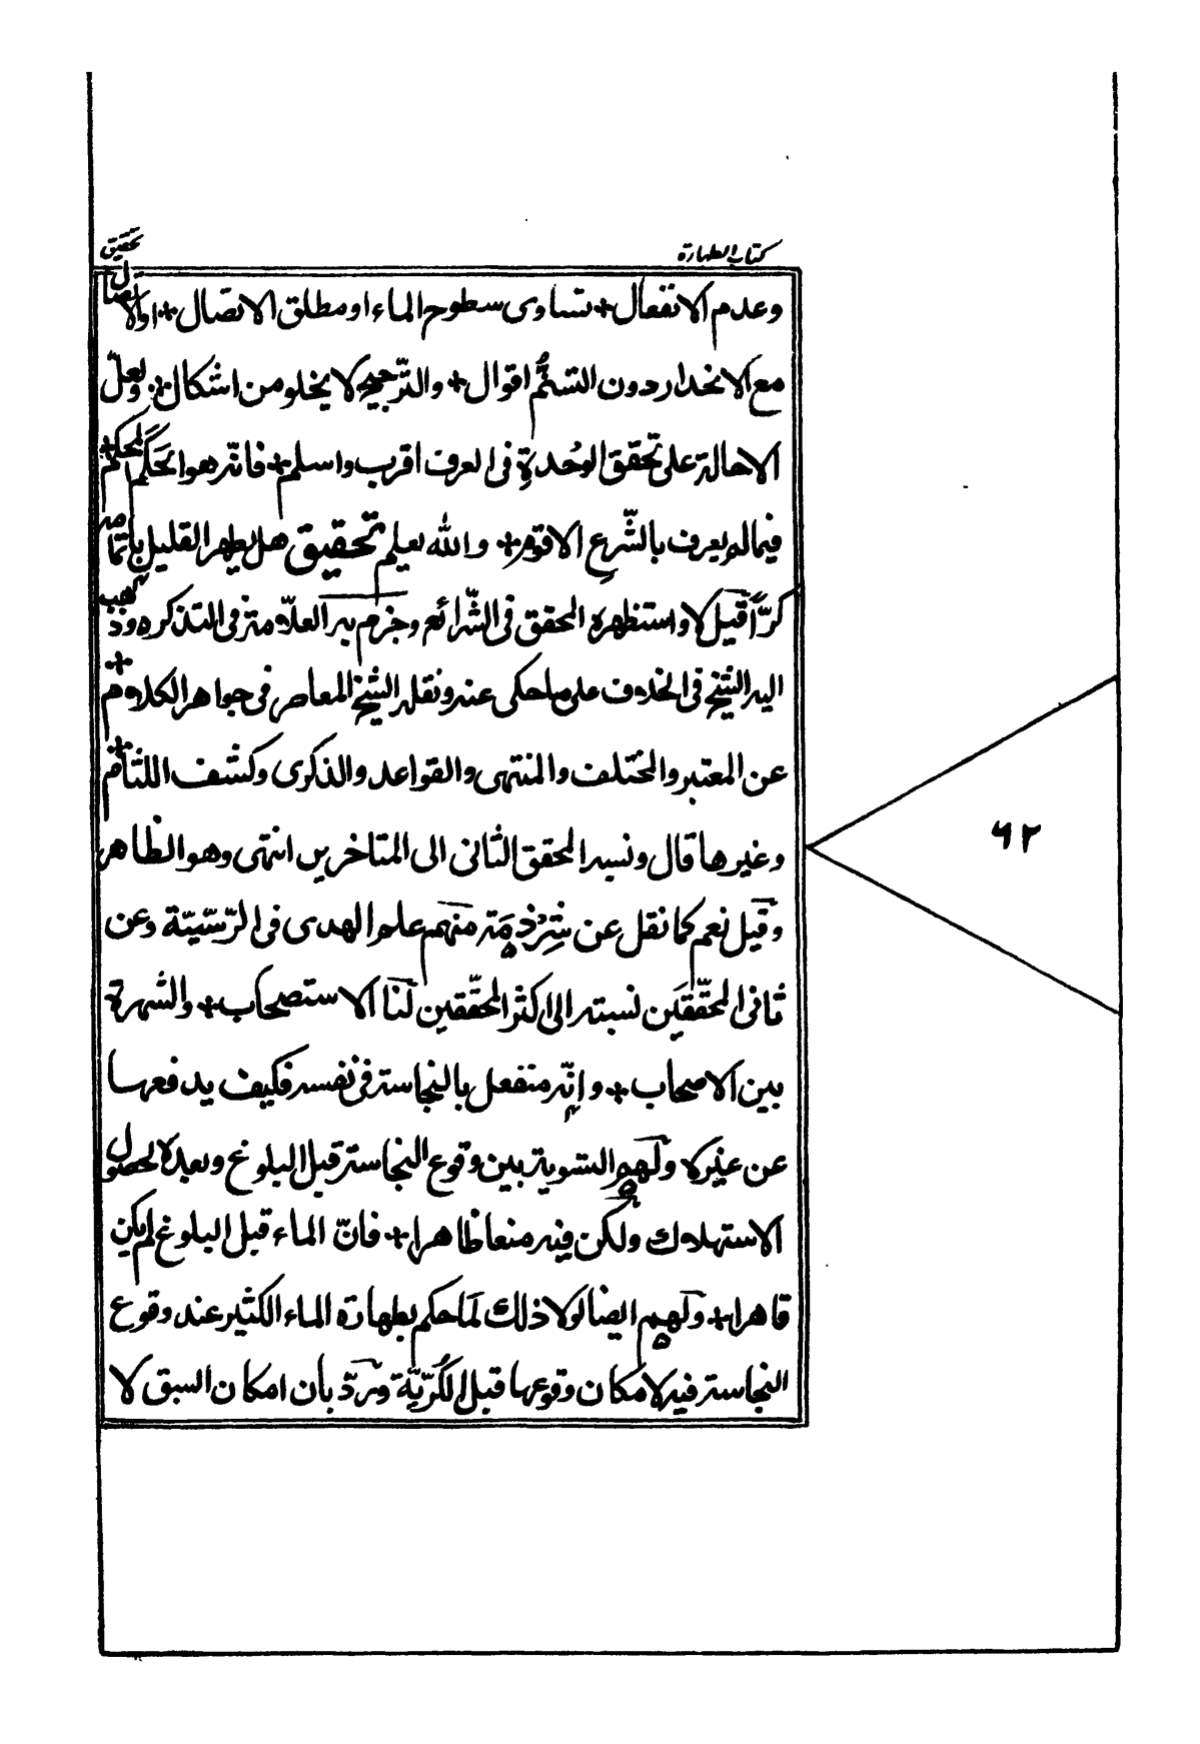 كتاب الطهارة
تحقيق
وعدم الانفعال + تساوى سطوح الماء او مطلق الاتصال + او الاتصال
مع الانحدار دون التسنُّم اقوال + والتّرجيح لا يخلو من اشكال + ولعلّ
الاحالة على تحقق الوحدة فى العرف اقرب واسلم + فانّه هو الحَكَم المحكم +
فيما لم يعرف بالشّرع الاقوم + والله يعلم تحقيق هل يطهر القليل باتمامه
كرّاً قيل لا واستظهره المحقق فى الشّرائع وجزم به العلّامة فى التذكره وذهب
اليه الشيخ فى الخلاف على ما حكى عنه ونقله الشيخ المعاصر فى جواهر الكلام +
عن المعتبر والمختلف والمنتهى والقواعد والذكرى وكشف اللثام +
وغيرها قال ونسبه المحقق الثانى الى المتاخرين انتهى وهو الظاهر
وقيل نعم كما نقل عن شِرْذِمَة منهم علم الهدى فى الرّسّيّة وعن
ثانى المحقّقَين نسبته الى اكثر المحقّقين لنا الاستصحاب + والشهرة
بين الاصحاب + وإنّه منفعل بالنجاسة فى نفسه فكيف يدفعها
عن غيره ولهم التسوية بين وقوع النجاسة قبل البلوغ وبعده لحصول
الاستهلاك ولكن فيه منعا ظاهرا + فانّ الماء قبل البلوغ لم يكن
قاهرا + ولهم ايضا لولا ذلك لَمَا حكم بطهارة الماء الكثير عند وقوع
النجاسة فيه لامكان وقوعها قبل الكُرّيّة ويردّ بأن امكان السبق لا
٦٢